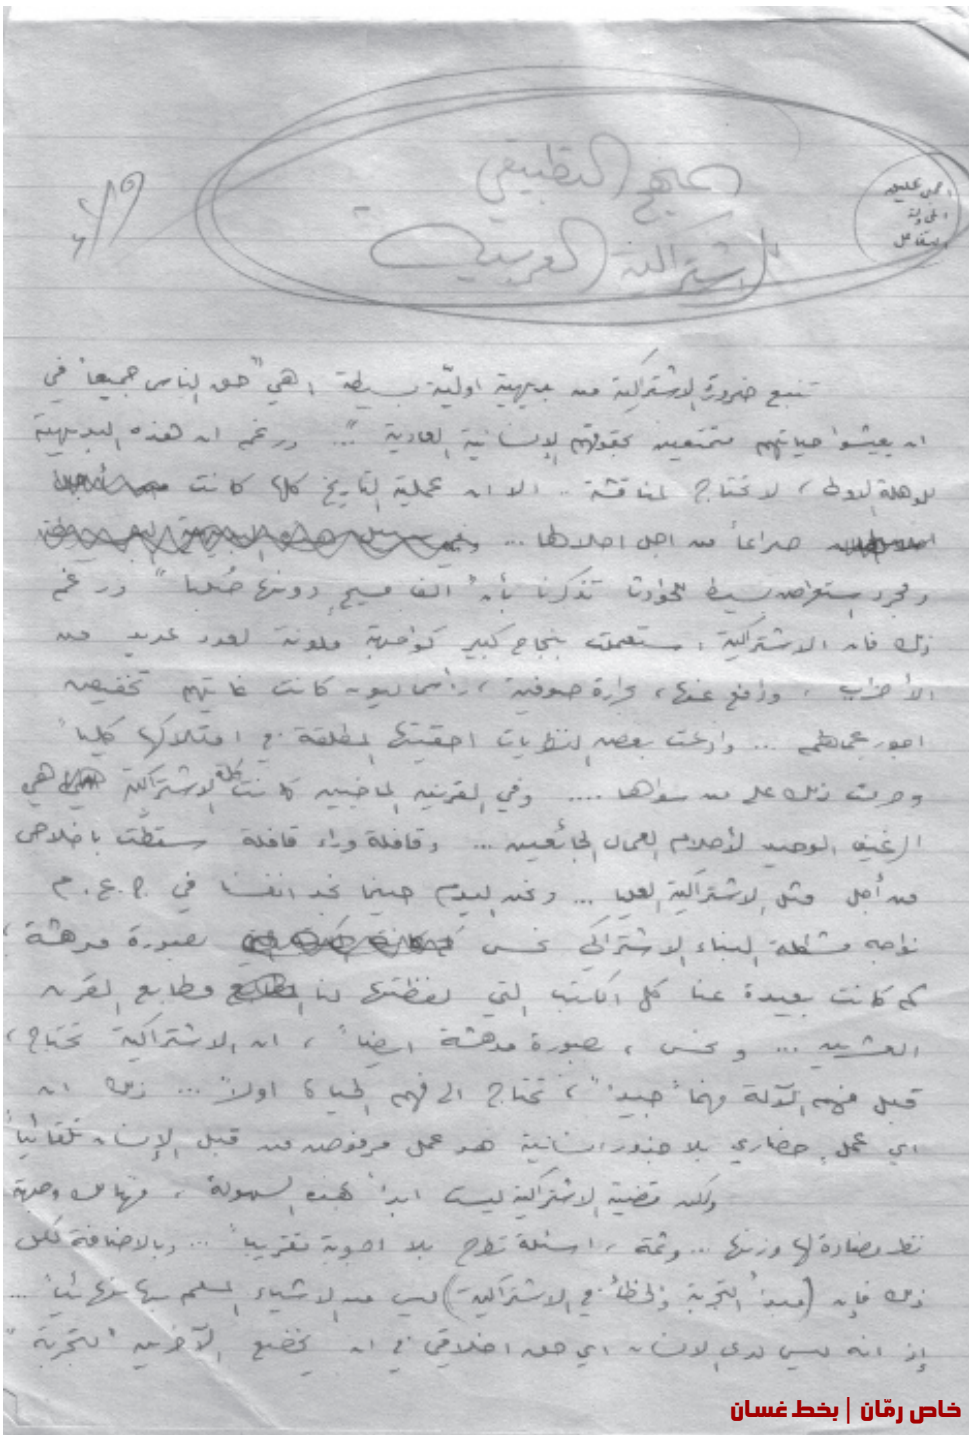 المنهج التطبيقي
للاشتراكية العربية
تنبع ضرورة الاشتراكية من بديهية اوليّة بسيطة هي "حق الناس جميعا" في
ان يعيشوا حياتهم متمتعين بحقوقهم الإنسانية العادية".. ورغم ان هذه البديهية
للوهلة الاولى، لا تحتاج لمناقشة.. الا ان عملية التاريخ كلها كانت
صراعاً من اجل احلالها...
ومجرد استعراض بسيط للحوادث تذكرنا بأن "الف مسيح دونها صُلبا" ورغم
ذلك فان الاشتراكية استعملت بنجاح كبير كواجهة ملونة لعدد عديد من
الأحزاب، ودافع عنها، بحرارة صوفية، رأسماليون كانت غايتهم تخفيض
اجور عمالهم... وادعت بعض النظريات احقيتها المطلقة في امتلاكها كلياً
وحرمت ذلك على من سواها.... وفي القرنين الماضيين كانت كلمة الاشتراكية هي
الرغيف الوحيد لأحلام العمال الجائعين... وقافلة وراء قافلة سقطت باخلاص
من أجل مثل الاشتراكية العليا... ونحن اليوم حينما نجد انفسنا في ج.ع.م
نواجه مشكلة البناء الاشتراكي نحس بصورة مدهشة،
كم كانت بعيدة عنا كل الكتب التي لفظتها لنا مطابع القرن
العشرين... ونحس، بصورة مدهشة ايضاً، ان الاشتراكية تحتاج،
قبل فهم الآلة فهماً جيداً، تحتاج الى فهم الحياة اولاً... ذلك ان
اي عمل حضاري بلا جذور انسانية هو عمل مرفوض من قبل الإنسان تلقائياً
ولكن قضية الاشتراكية ليست ابداً بهذه السهولة، فهناك وجهة
نظر مضادة لها وزنها... وثمة، اسئلة تطرح بلا اجوبة تقريباً... وبالاضافة لكل
ذلك فإن (مبدأ التجربة والخطأ في الاشتراكية) ليس من الاشياء المسلم بها نهائياً...
إذ انه ليس لدى الانسان اي حق اخلاقي في ان يخضع الآخرين "لتجربة"
خاص رمّان | بخط غسان